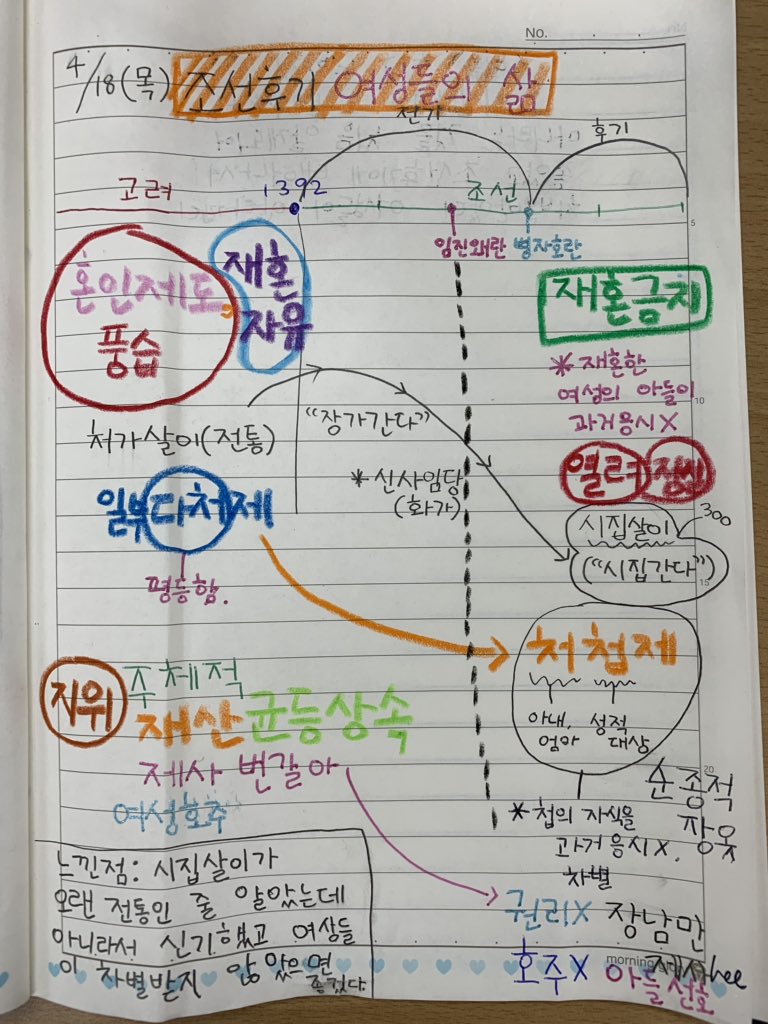 No.
4/18(목) 조선후기 여성들의 삶
전기
후기
고려
1392
조선
임진왜란
병자호란
혼인제도,
풍습
재혼
자유
재혼금지
* 재혼한
여성의 아들이
과거응시 X
처가살이(전통)
"장가간다"
* 신사임당
(화가)
열려
시집살이
300
("시집간다")
일부다처제
평등함.
처첩제
아내,
엄마
성적
대상
* 첩의 자식을
과거 응시 X.
차별
순종적
장옷
지위
주체적
재산균등상속
제사 번갈아
여성호주
권리X 장남만
제사
호주X 아들선호
느낀점: 시집살이가
오랜 전통인 줄 알았는데
아니라서 신기했고 여성들
이 차별받지 않았으면
좋겠다
5
10
15
20